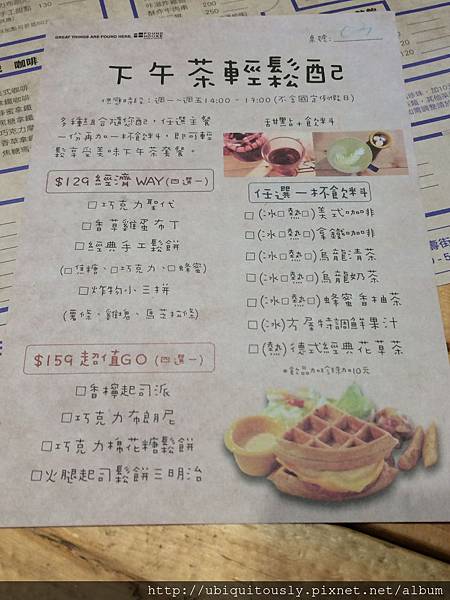 GREAT THINGS ARE FOUND HERE.
桌號:
下午茶輕鬆配
供應時段：週一~週五14:00 - 17:00 (不含國定例假日)
多種組合隨您配，任選主餐
一份再加一杯飲料，即可輕
鬆享受美味下午茶套餐。
$129 經濟 WAY (四選一)
□巧克力聖代
□香草雞蛋布丁
□經典手工鬆餅
(□焦糖、□巧克力、□蜂蜜)
□炸物小三拼
(薯條、雞塊、馬芝拉條)
$159 超值GO (四選一)
□香檸起司派
□巧克力布朗尼
□巧克力棉花糖鬆餅
□火腿起司鬆餅三明治
甜點+飲料
任選一杯飲料
□(冰□熱□)美式咖啡
□(冰□熱□)拿鐵咖啡
□(冰□熱□)烏龍清茶
□(冰□熱□)烏龍奶茶
□(冰□熱□)蜂蜜香柚茶
□(冰)方屋特調鮮果汁
□(熱)德式經典花草茶
*飲品加料加10元
http://ubiquitously.pixnet.net/album